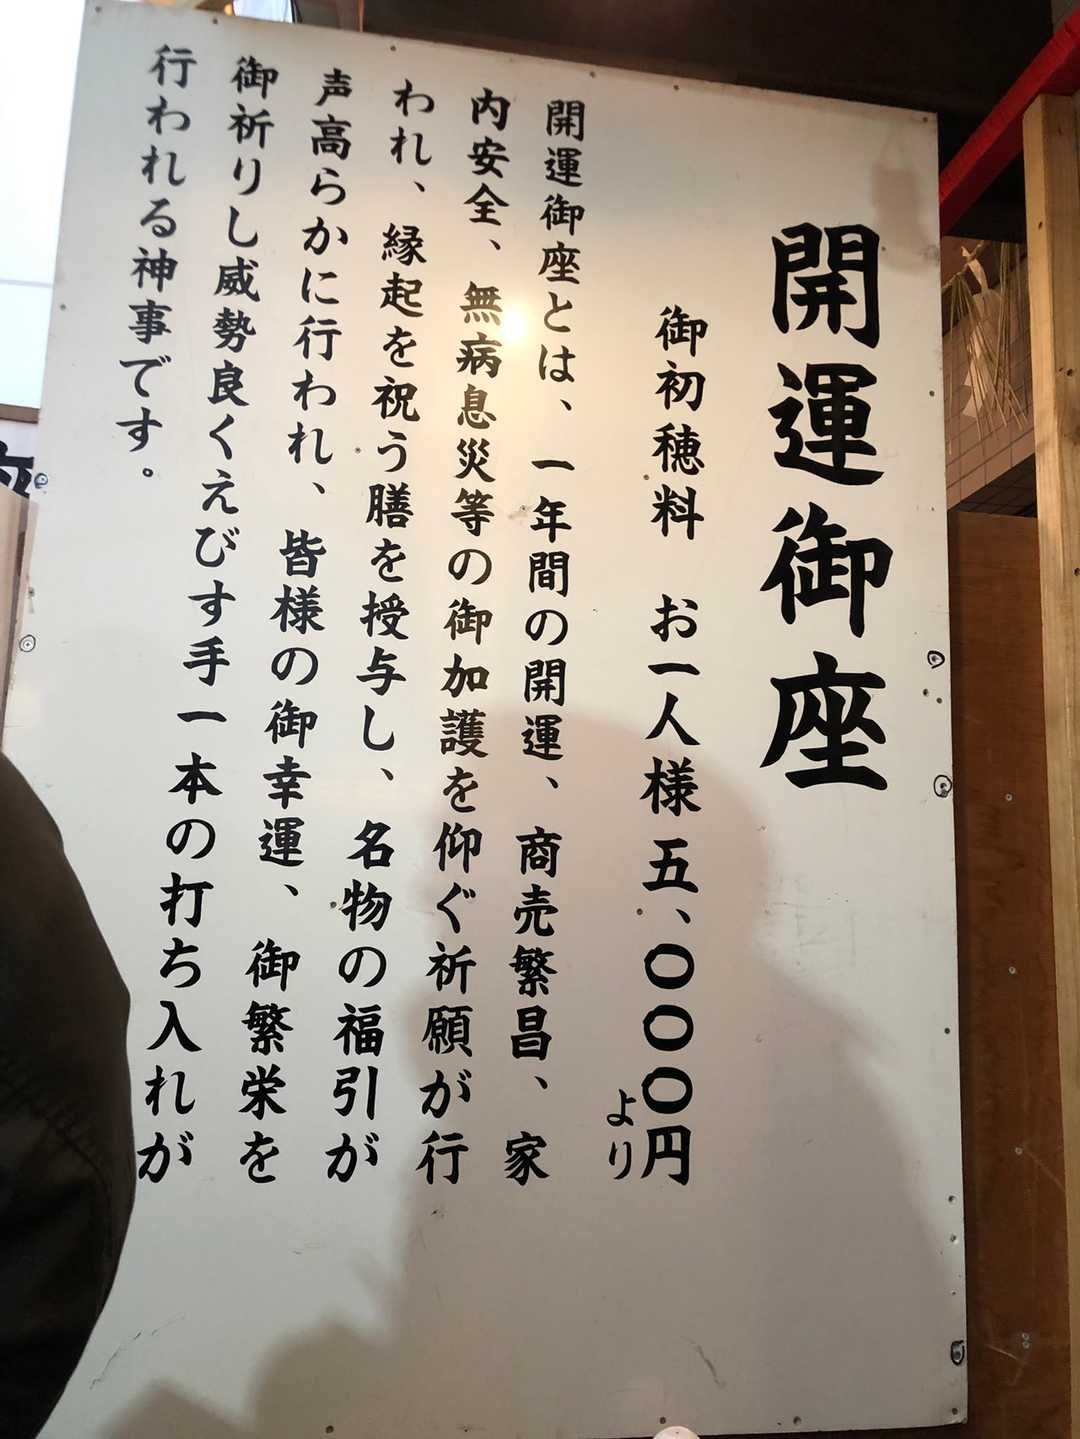 開運御座
御初穂料　お一人様五、〇〇〇円より
開運御座とは、一年間の開運、商売繁昌、家
内安全、無病息災等の御加護を仰ぐ祈願が行
われ、縁起を祝う膳を授与し、名物の福引が
声高らかに行われ、皆様の御幸運、御繁栄を
御祈りし威勢良くえびす手一本の打ち入れが
行われる神事です。